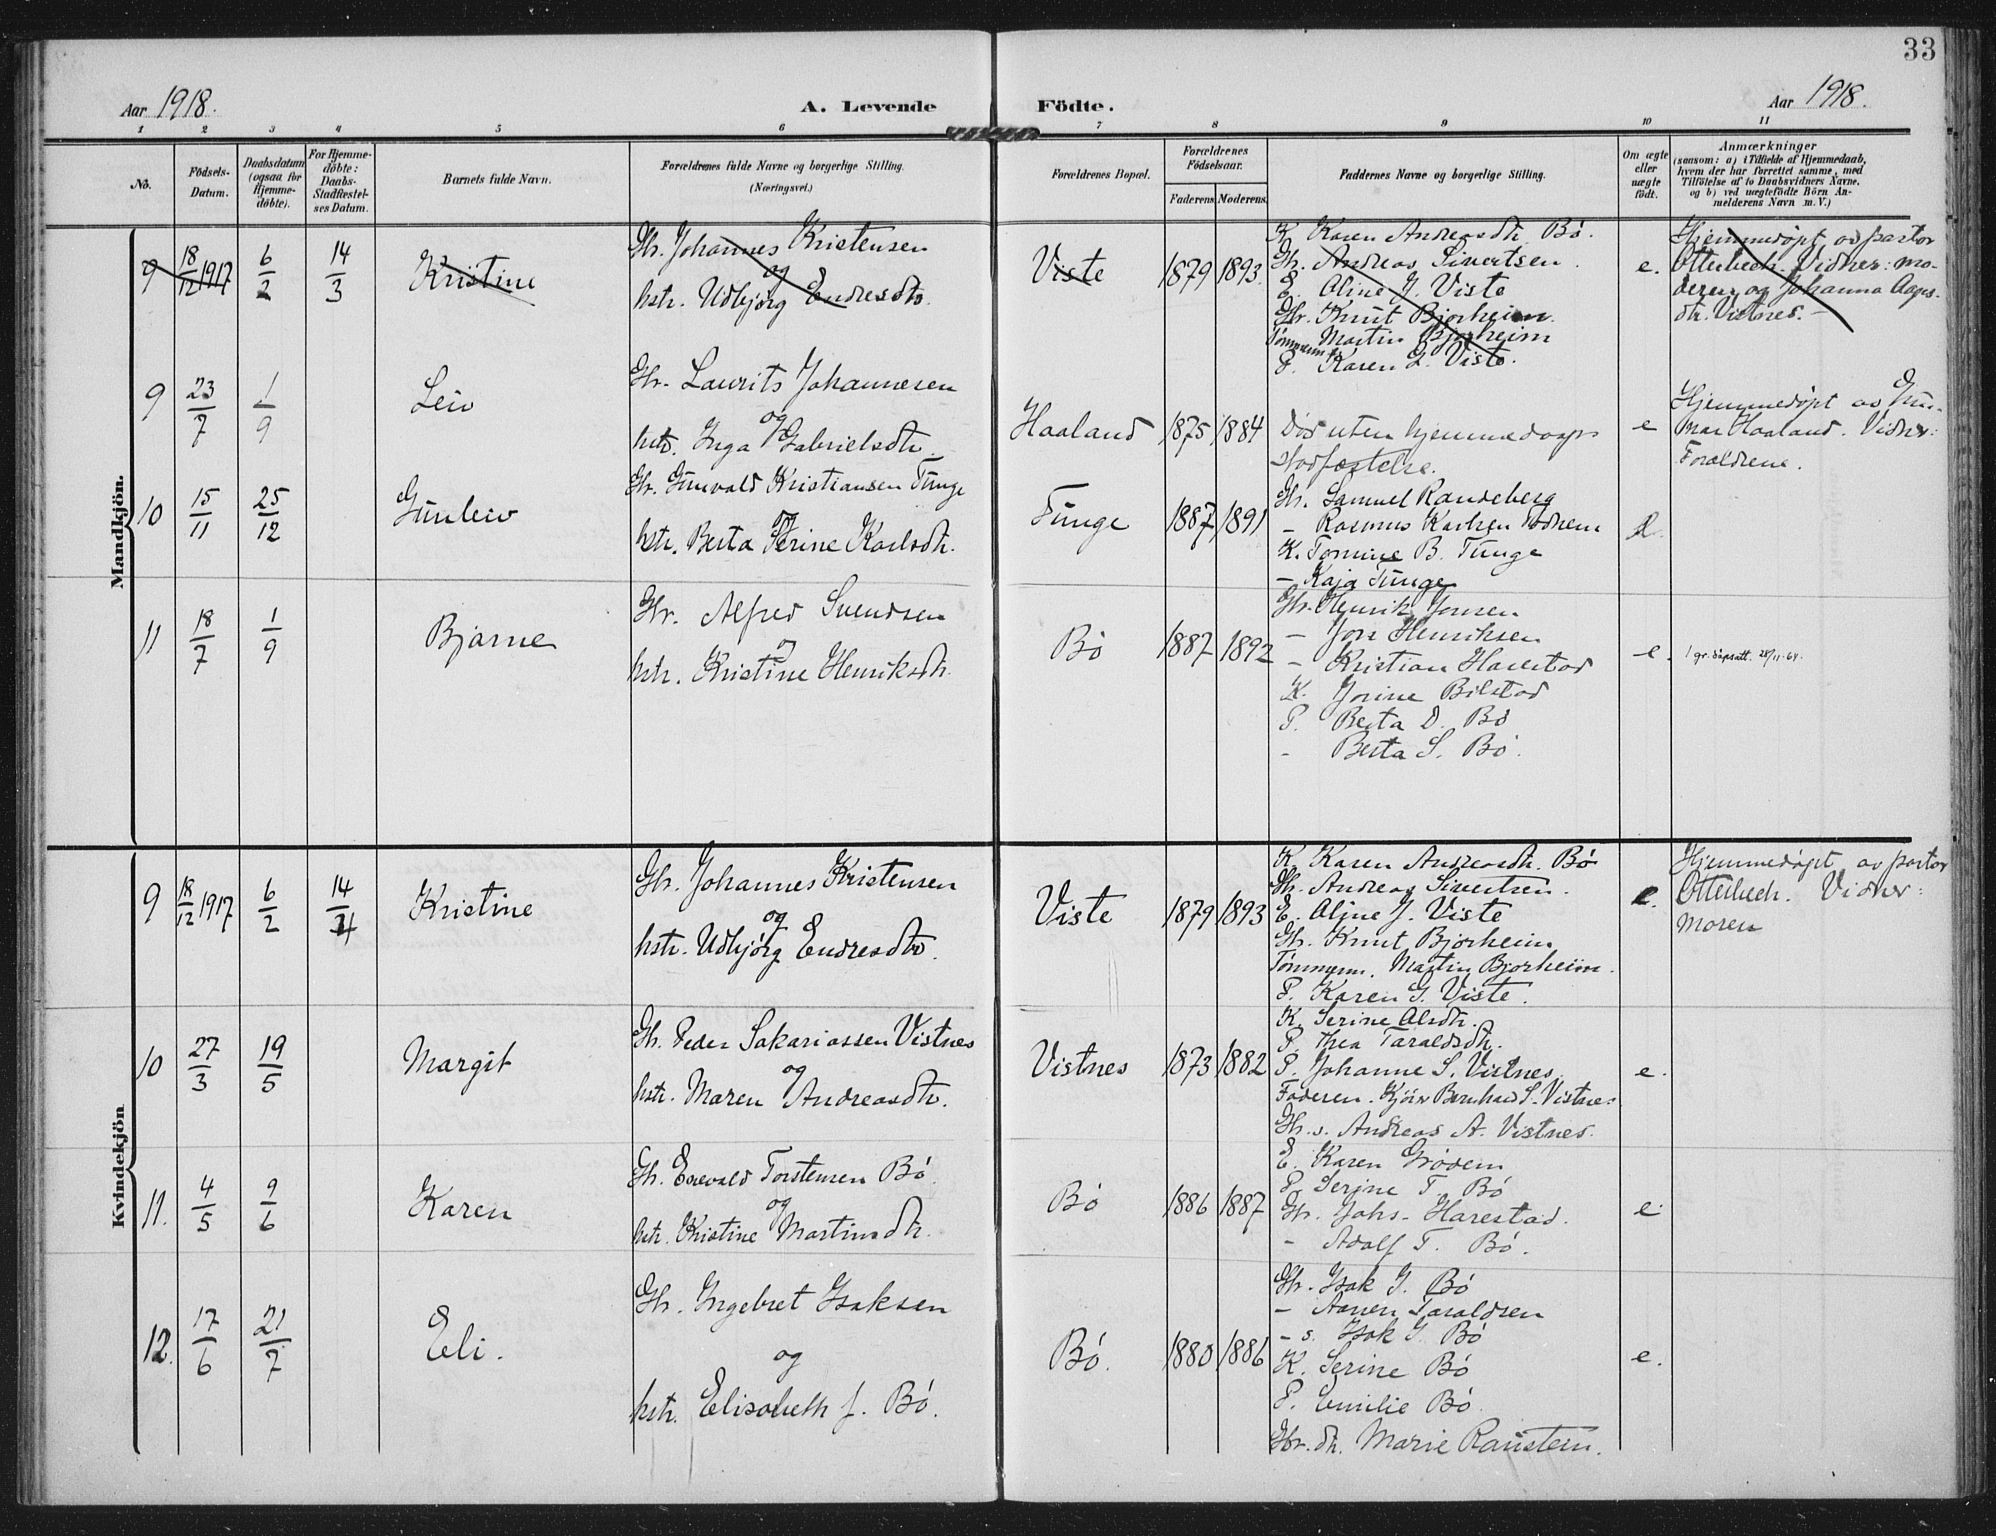 33
Aar 1918.
A. Levende Födte.
Aar 1918.
1 2 3 4 5 6 7 8 9 10 11
No.
Födsels-
Datum.
Daabsdatum
(ogsaa for
Hjemme-
döbte).
For Hjemme-
döbte:
Daabs-
Stadfæstel-
ses Datum.
Barnets fulde Navn.
Forældrenes fulde Navne og borgerlige Stilling.
(Næringsvei.)
Forældrenes Bopæl.
Forældrenes
Födselsaar.
Faderens. Moderens.
Faddernes Navne og borgerlige Stilling.
Om ægte
eller
uægte
födt.
Anmærkninger
(saasom: a) i Tilfælde af Hjemmedaab,
hvem der har forrettet samme, med
Tilföielse af to Daabsvidners Navne,
og b) ved uægtefödte Börn An-
melderens Navn m. V.)
Mandkjön.
9 18/12 1917 6/2 14/3 Kristine
Gbr. Johannes Kristensen
og
hstr. Udbjørg Endresdtr.
Viste 1879 1893
K. Karen Andreasdtr. Bø.
Gbr. Andreas Sivertsen.
E. Aline J. Viste
Gbr. Knut Bjorheim.
Tømmerm. Martin Bjorheim
P. Karen G. Viste.
e.
Hjemmedøpt av pastor
Otterbech. Vidner: mo-
deren og Johanna Aags-
dtr. Vistnes.
9 23/7 1/9 Leiv
Gbr. Laurits Johannesen
og
hstr. Inga Gabrielsdtr.
Haaland 1875 1884
Død uten hjemmedaaps
stadfæstelse.
e
Hjemmedøpt av Gun-
nar Haaland. Vidner:
Forældrene.
10 15/11 25/12 Gunleiv
Gbr. Gunvald Kristiansen Tunge
og
hstr. Berta Serine Karlsdtr.
Tunge 1887 1891
Gbr. Samuel Randeberg
– Rasmus Karlsen Todnem
K. Tomine B. Tunge
– Kaja Tunge
e.
11 18/7 1/9 Bjarne
Gbr. Alfred Svendsen
og
hstr. Kristine Henriksdtr.
Bø 1887 1892
Gbr. Henrik Jonsen
– Jon Henriksen
– Kristian Harestad
K. Jorine Bilstad
P. Berta D. Bø
– Berta S. Bø.
e.
1 gr. dåpsatt. 28/11-64.
Kvindekjön
9 18/12 1917 6/2 14/4 Kristine
Gbr. Johannes Kristensen
og
hstr. Udbjørg Endresdtr.
Viste 1879 1893
K. Karen Andreasdtr. Bø
Gbr. Andreas Sivertsen.
E. Aline J. Viste
Gbr. Knut Bjorheim
Tømmerm. Martin Bjorheim.
P. Karen G. Viste.
e.
Hjemmedøpt av pastor
Otterbech. Vidner:
moren
10 27/3 19/5 Margit
Gbr. Peder Sakariassen Vistnes
og
hstr. Maren Andreasdtr.
Vistnes 1873 1882
K. Serine Olsdtr.
P. Thea Taraldsdtr.
P. Johanne S. Vistnes
Faderen. Bernhard S. Vistnes
Gbr. s. Andreas A. Vistnes.
e.
11. 4/5 9/6 Karen
Gbr. Enevald Torstensen Bø
og
hstr. Kristine Martinsdtr.
Bø 1886 1887
E. Karen Grødem
P. Serine T. Bø
Gbr. Johs. Harestad.
– Adolf T. Bø.
e
12. 17/6 21/7 Eli.
Gbr. Ingebret Isaksen
og
hstr. Elisabeth f. Bø.
Bø. 1880 1886
Gbr. Isak I. Bø
– Aanen Taraldsen
– s. Isak I. Bø
K. Serine Bø
P. Emilie Bø.
Gbr. dtr. Marie Raustein.
e.